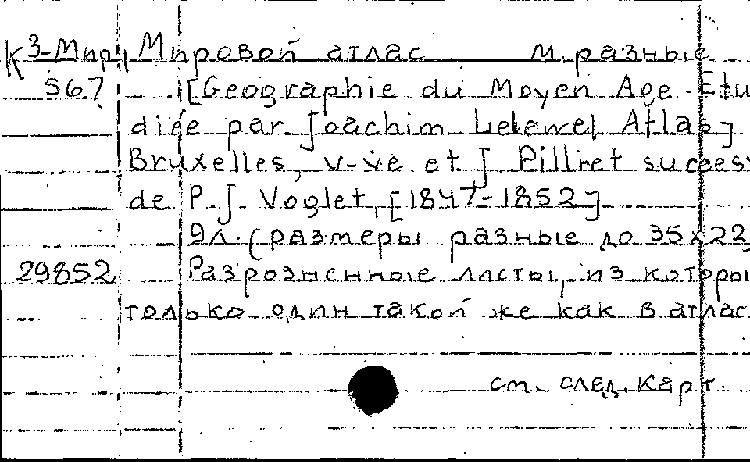 К3-Мир, Мировой атлас м. разные
567 [Geographie du Moyen Age. Etu
diée par Joachim Lelewel Atlas]
Bruxelles, v-ve et J Pilliet succes
de P. J. Voglet, [1847-1852]
9л. (размеры разные до 35x22
29852 Разрозненные листы, из которы
только один такой же как в атлас
см. след. карт.